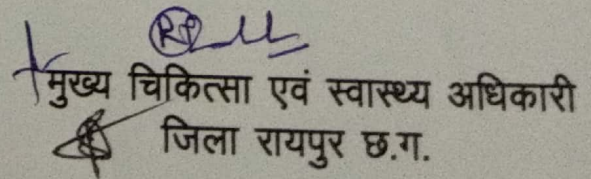 मुख्य चिकित्सा एवं स्वास्थ्य अधिकारी
जिला रायपुर छ.ग.